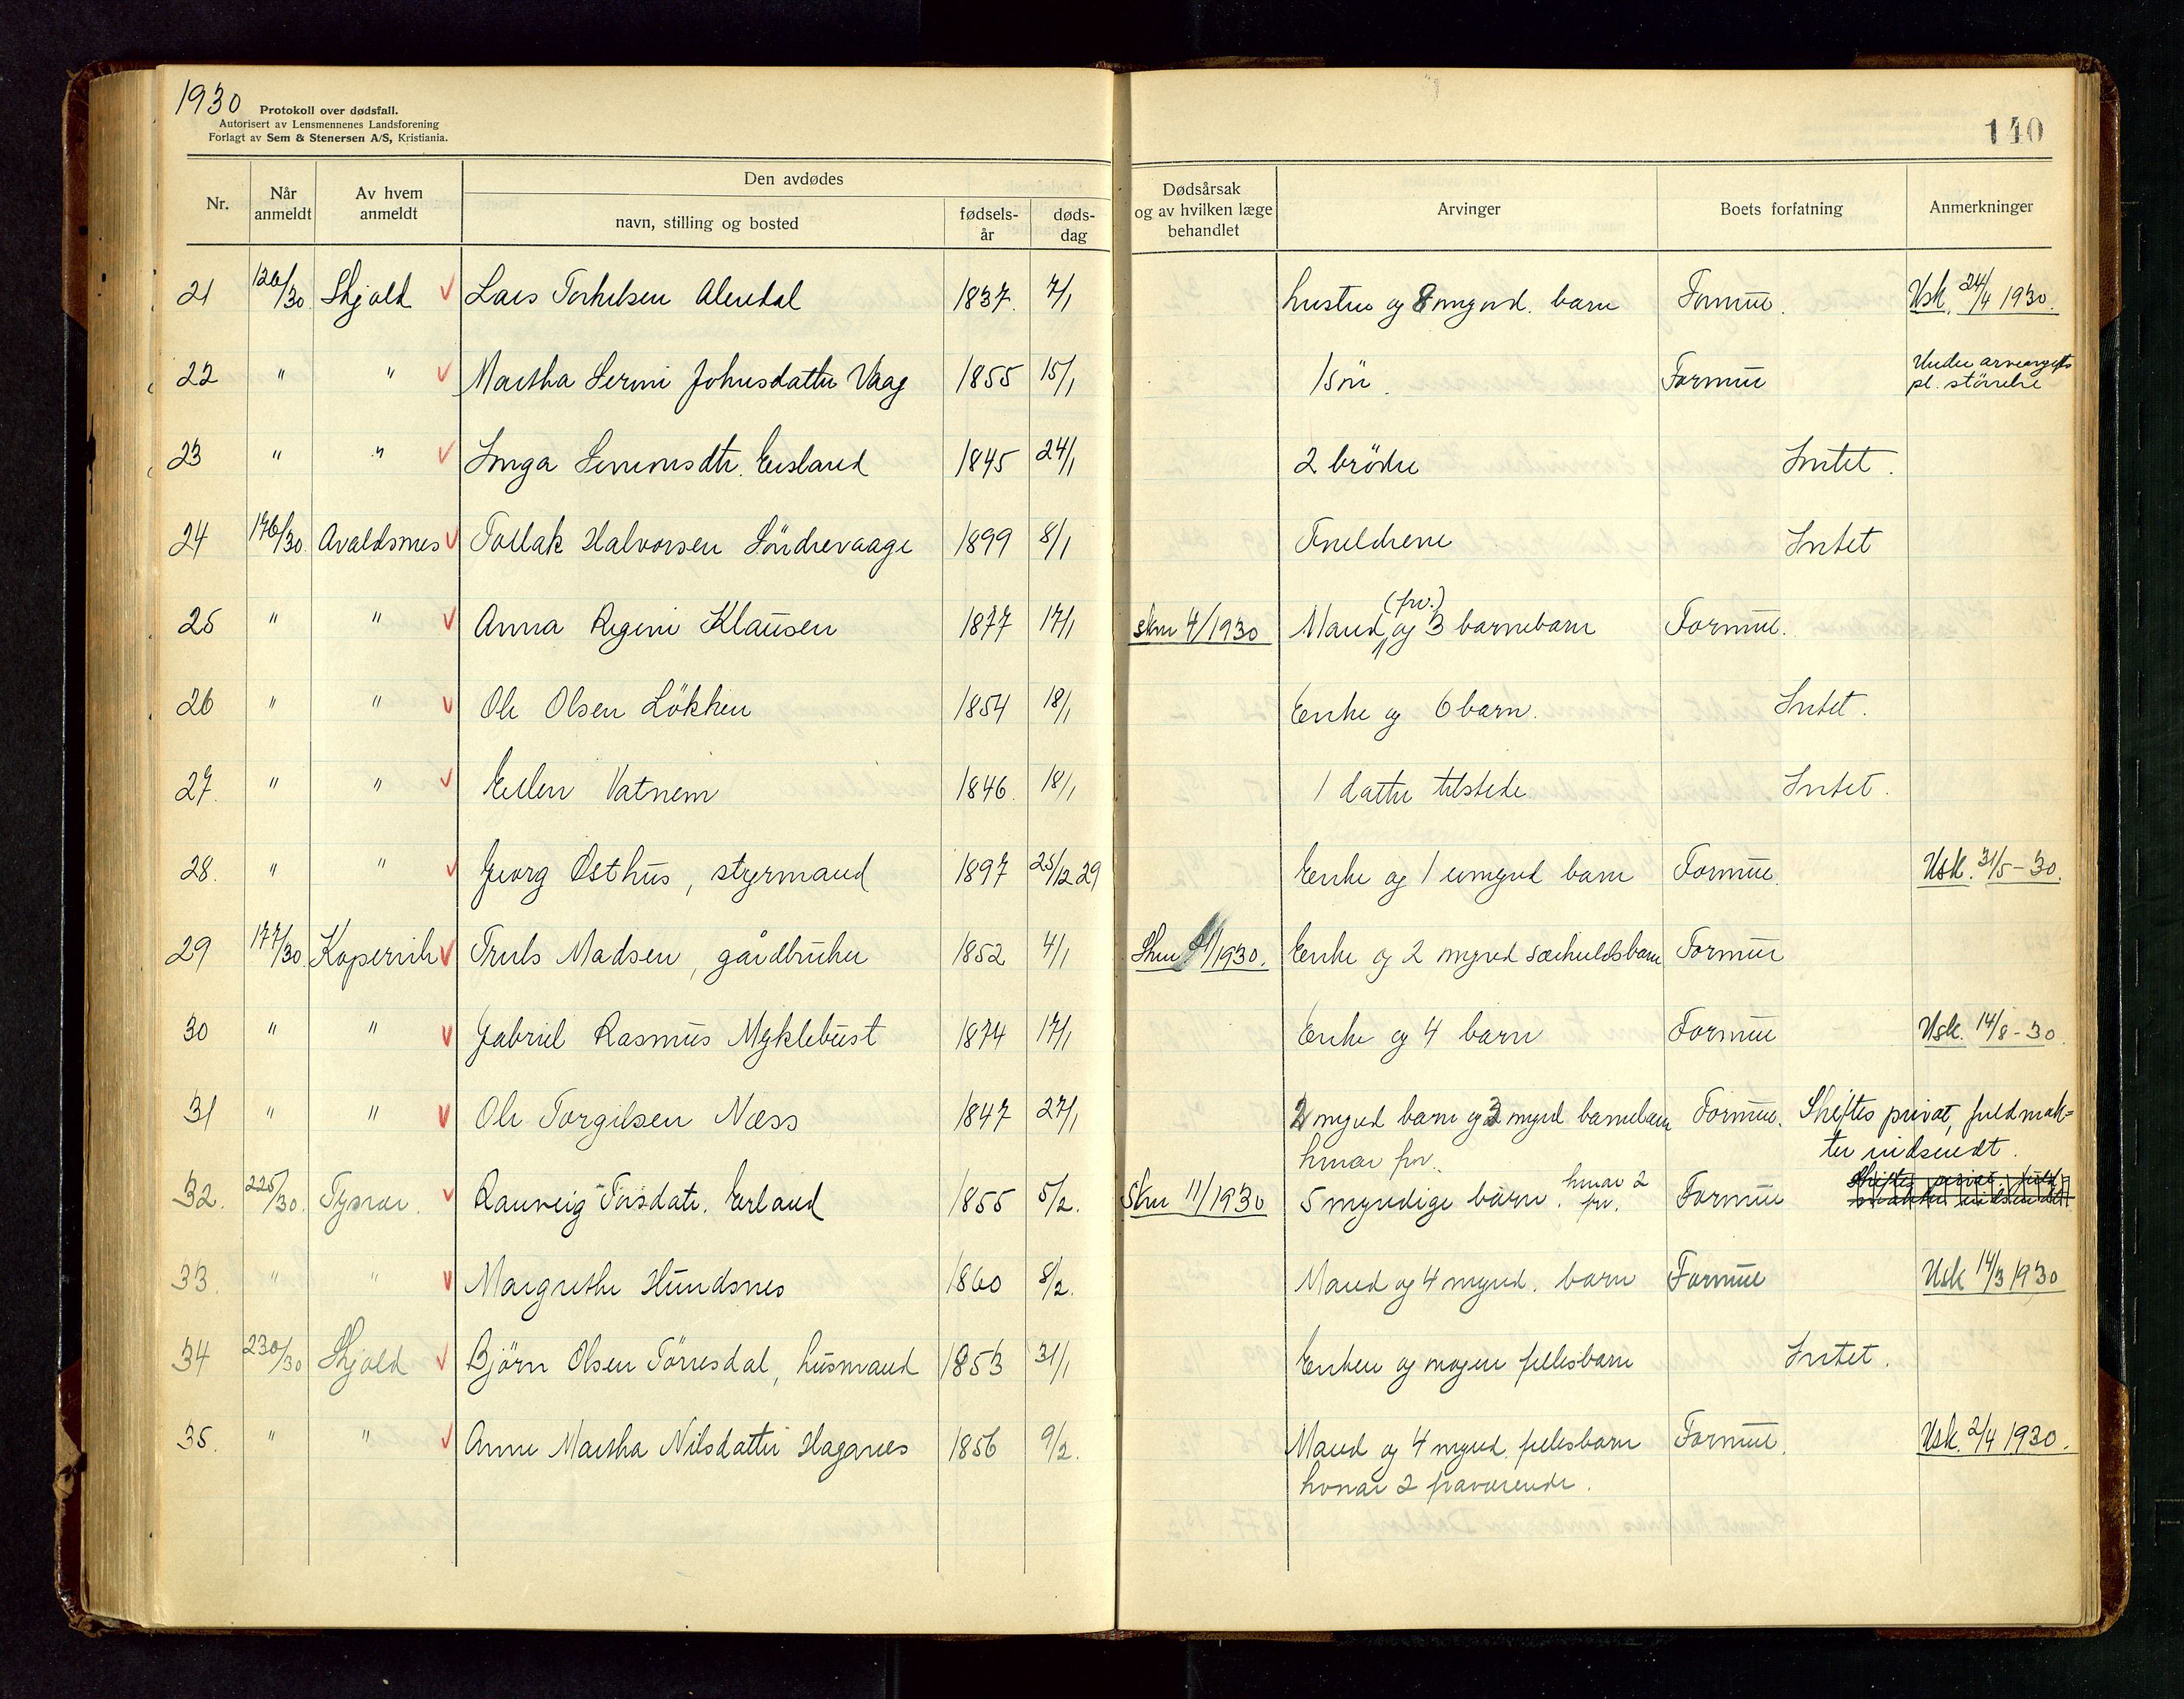 1930
Protokoll over dødsfall.
Autorisert av Lensmennenes Landsforening
Forlagt av Sem & Stenersen A/S, Kristiania.
140
Nr. Når anmeldt Av hvem anmeldt Den avdødes navn, stilling og bosted fødsels-år døds-dag Dødsårsak og av hvilken læge behandlet Arvinger Boets forfatning Anmerkninger
21 126/30. Skjold Lars Torkelsen Alendal 1837. 7/1 hustru og 8 mynd. barn Formue. Usk. 24/4 1930.
22 " " Martha Serine Johnsdatter Vaag 1855 15/1 1 sön. Formue Under arveavgifts pl. störrelse
23 " " Inga Simonsdtr. Eisland 1845 24/1 2 brödre Intet.
24 176/30. Avaldsnes Tollak Halvorsen Söndrevaage 1899 8/1 Foreldrene Intet
25 " " Anna Regine Klausen 1877 17/1 skm 4/1930 Mand (frv.) og 3 barnebarn Formue.
26 " " Ole Olsen Lökken 1854 18/1 Enke og 6 barn. Intet.
27. " " Ellen Vatnem 1846. 18/1 1 datter tilstede Intet.
28. " " Georg Østhus, styrmand 1897 25/12 29 Enke og 1 umynd barn Formue. Usk. 31/5 - 30.
29 177/30 Kopervik Truls Madsen, gårdbruker 1852 4/1 Skm /1930. Enke og 2 mynd særkuldsbarn Formue
30 " " Gabriel Rasmus Myklebust 1874 17/1 Enke og 4 barn Formue Usk. 14/8 - 30.
31 " " Ole Torgilsen Næss 1847 27/1 2 mynd barn og 3 mynd barnebarn Formue. Skiftes privat, fuldmak-
hvorav frv. ter indsendt.
32. 225/30. Tysvær. Ranveig Torsdatr. Erland 1855 5/2. Skm 11/1930 5 myndige barn. hvorav 2 frv. Formue Skiftes privat, fuld- makter indsendt
33. " " Margrethe Hundsnes 1860 8/2. Mand og 4 mynd. barn Formue Usk 14/3 1930
34 230/30 Skjold Björn Olsen Törresdal, husmand 1853 31/1 Enken og mogne fellesbarn Intet.
35. " " Anne Martha Nilsdatter Haganes 1856 9/2. Mand og 4 mynd. fellesbarn Formue. Usk. 2/4 1930.
hvorav 2 fraværende.